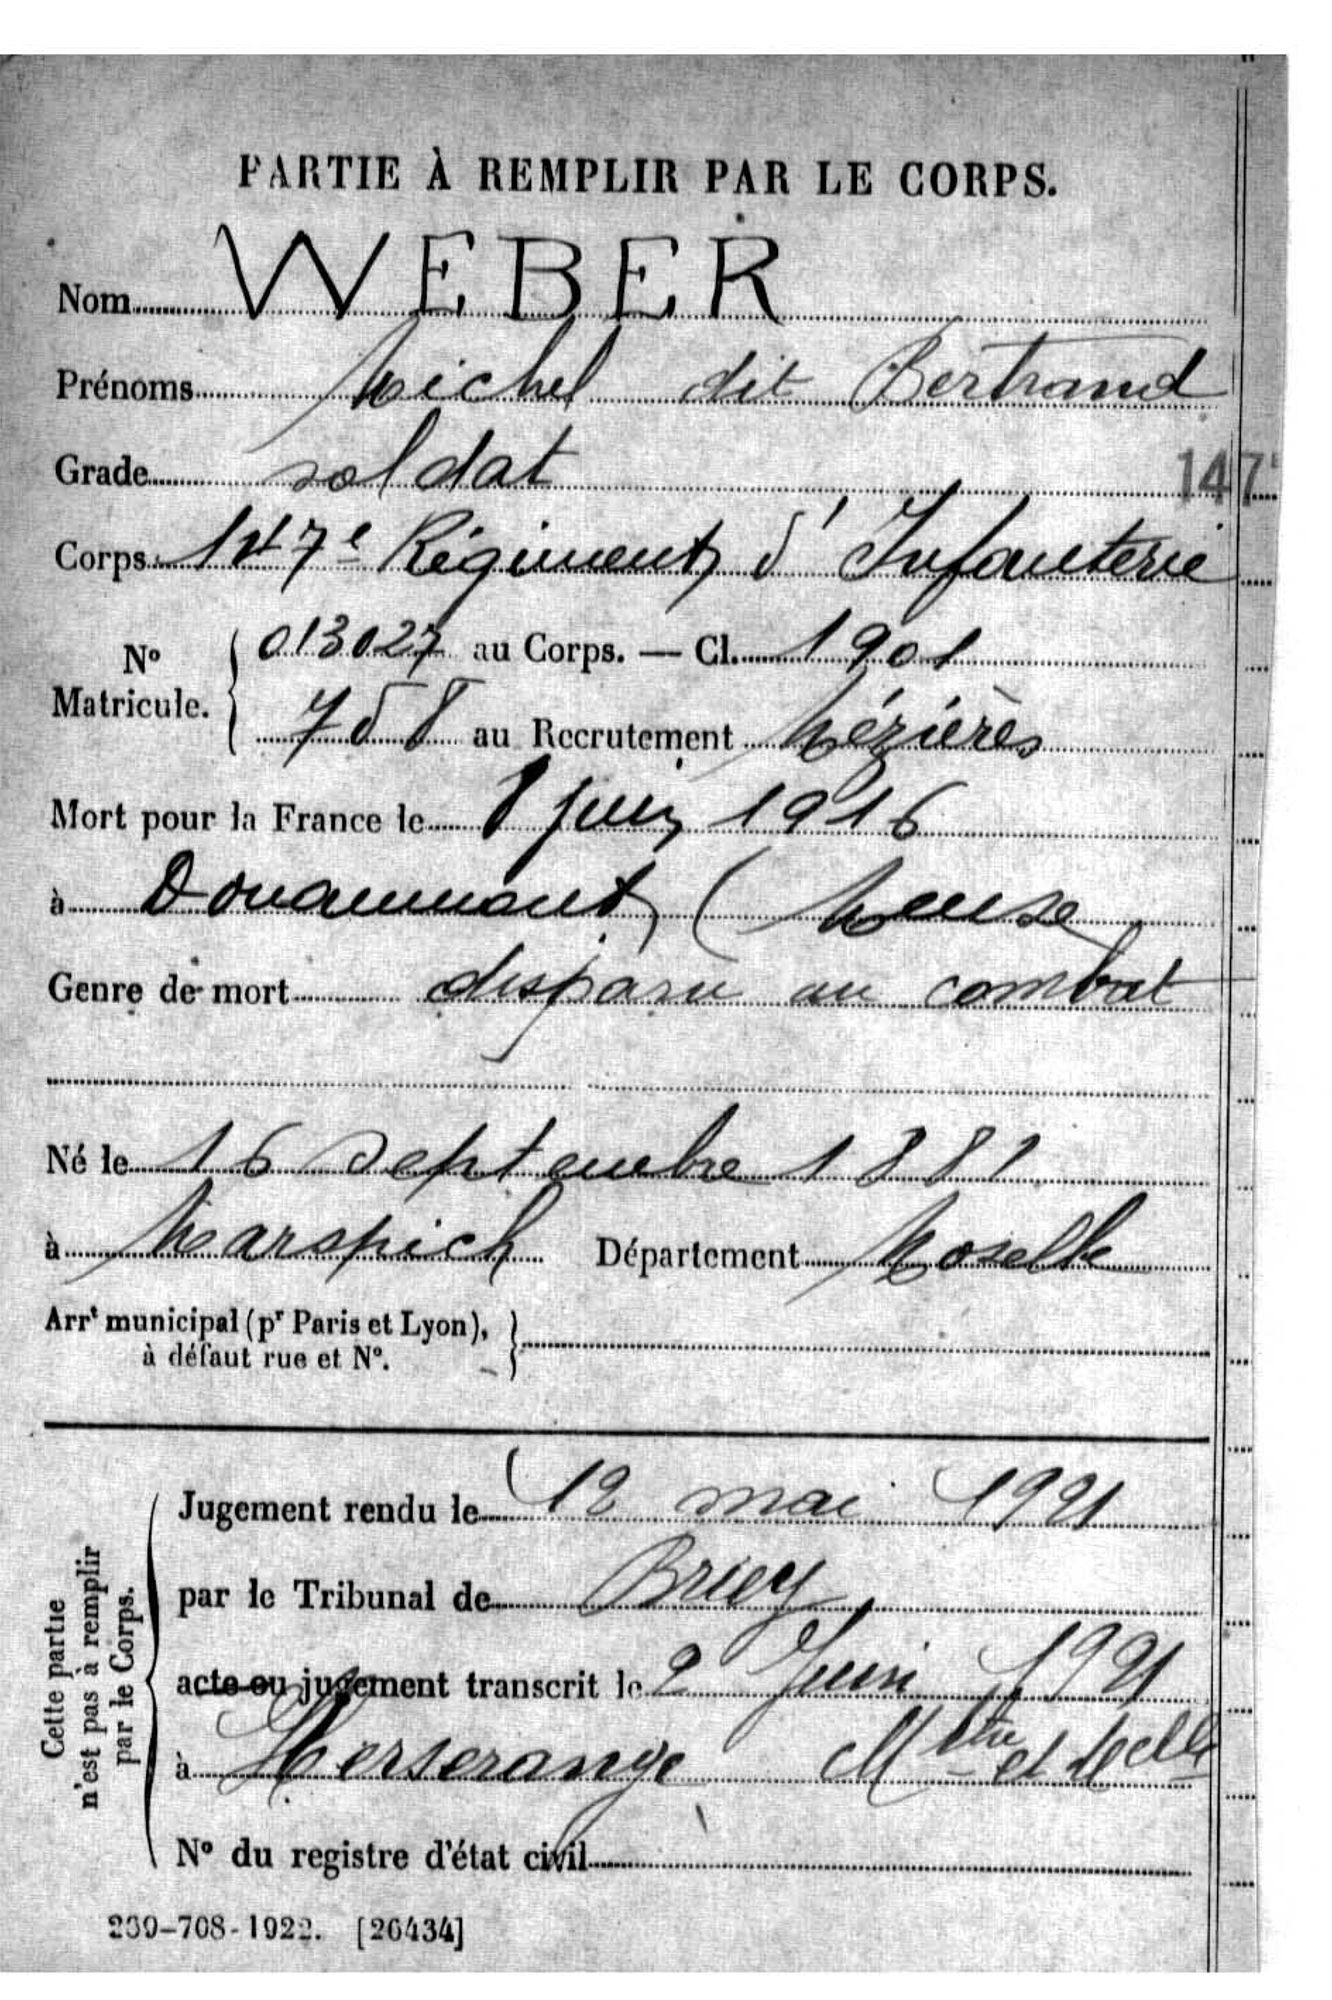 PARTIE À REMPLIR PAR LE CORPS.
Nom WEBER
Prénoms Michel dit Bertrand
Grade soldat
147
Corps 147e Régiment d'Infanterie
No Matricule. { 013027 au Corps. — Cl. 1901
758 au Recrutement Mézières
Mort pour la France le 8 juin 1916
à Douaumont (Meuse
Genre de mort disparu au combat
Né le 16 septembre 1881
à Marspich Département Moselle
Arrt municipal (pr Paris et Lyon),
à défaut rue et No.
Cette partie
n'est pas à remplir
par le Corps.
Jugement rendu le 12 mai 1921
par le Tribunal de Briey
acte ou jugement transcrit le 2 Juin 1921
à Herserange Mthe et Melle
No du registre d'état civil
239-708-1922. [26434]